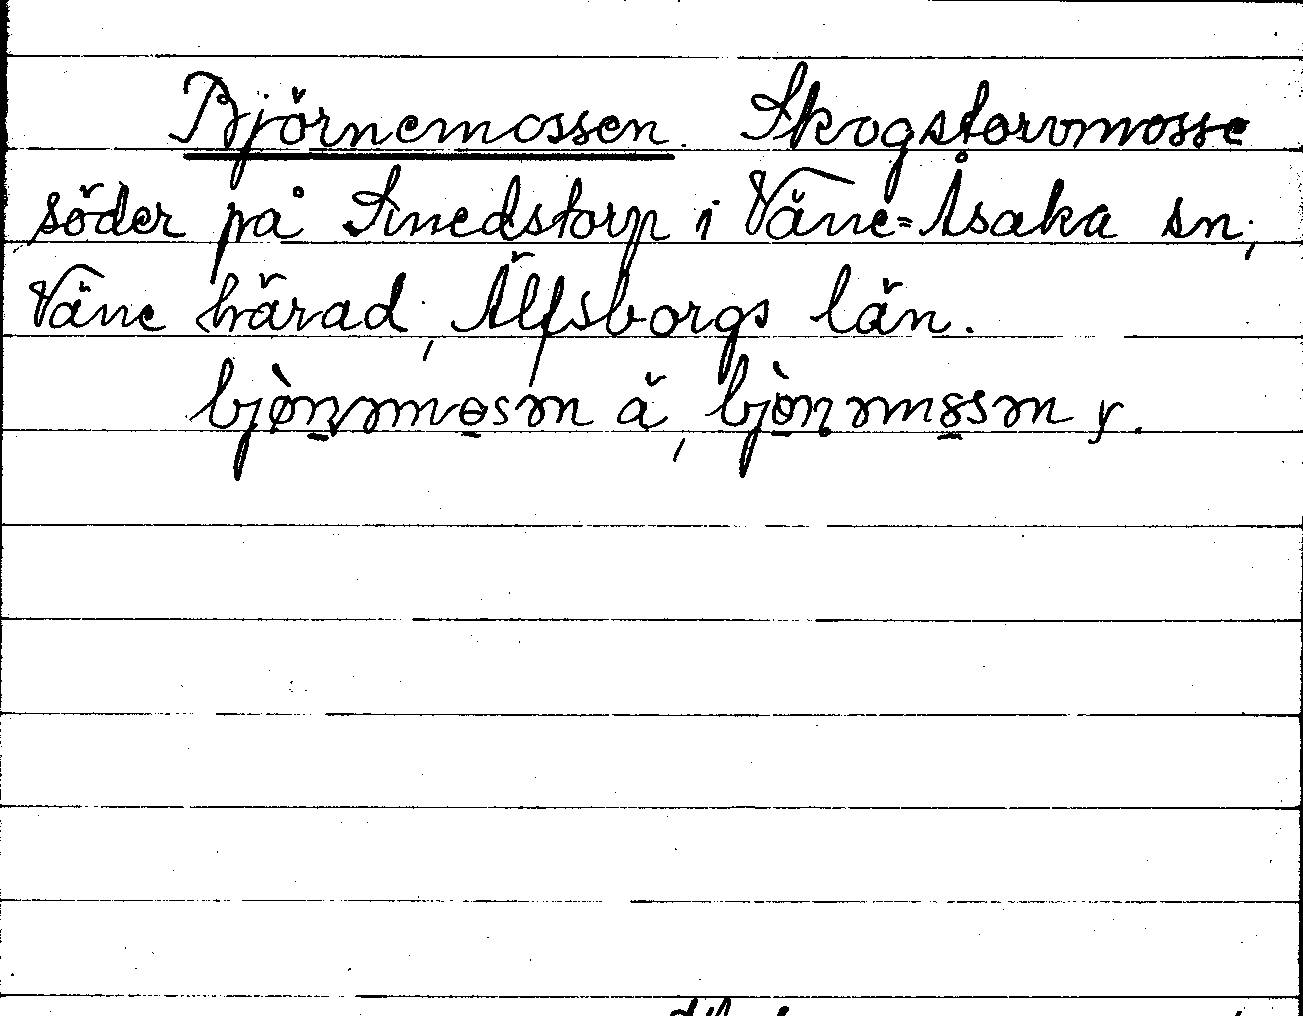 Björnemossen. Skogstorvmosse
söder på Smedstorp i Väne-Åsaka sn,
Väne härad, Älfsborgs län.
bjònmosm ä, bjònmosm y.